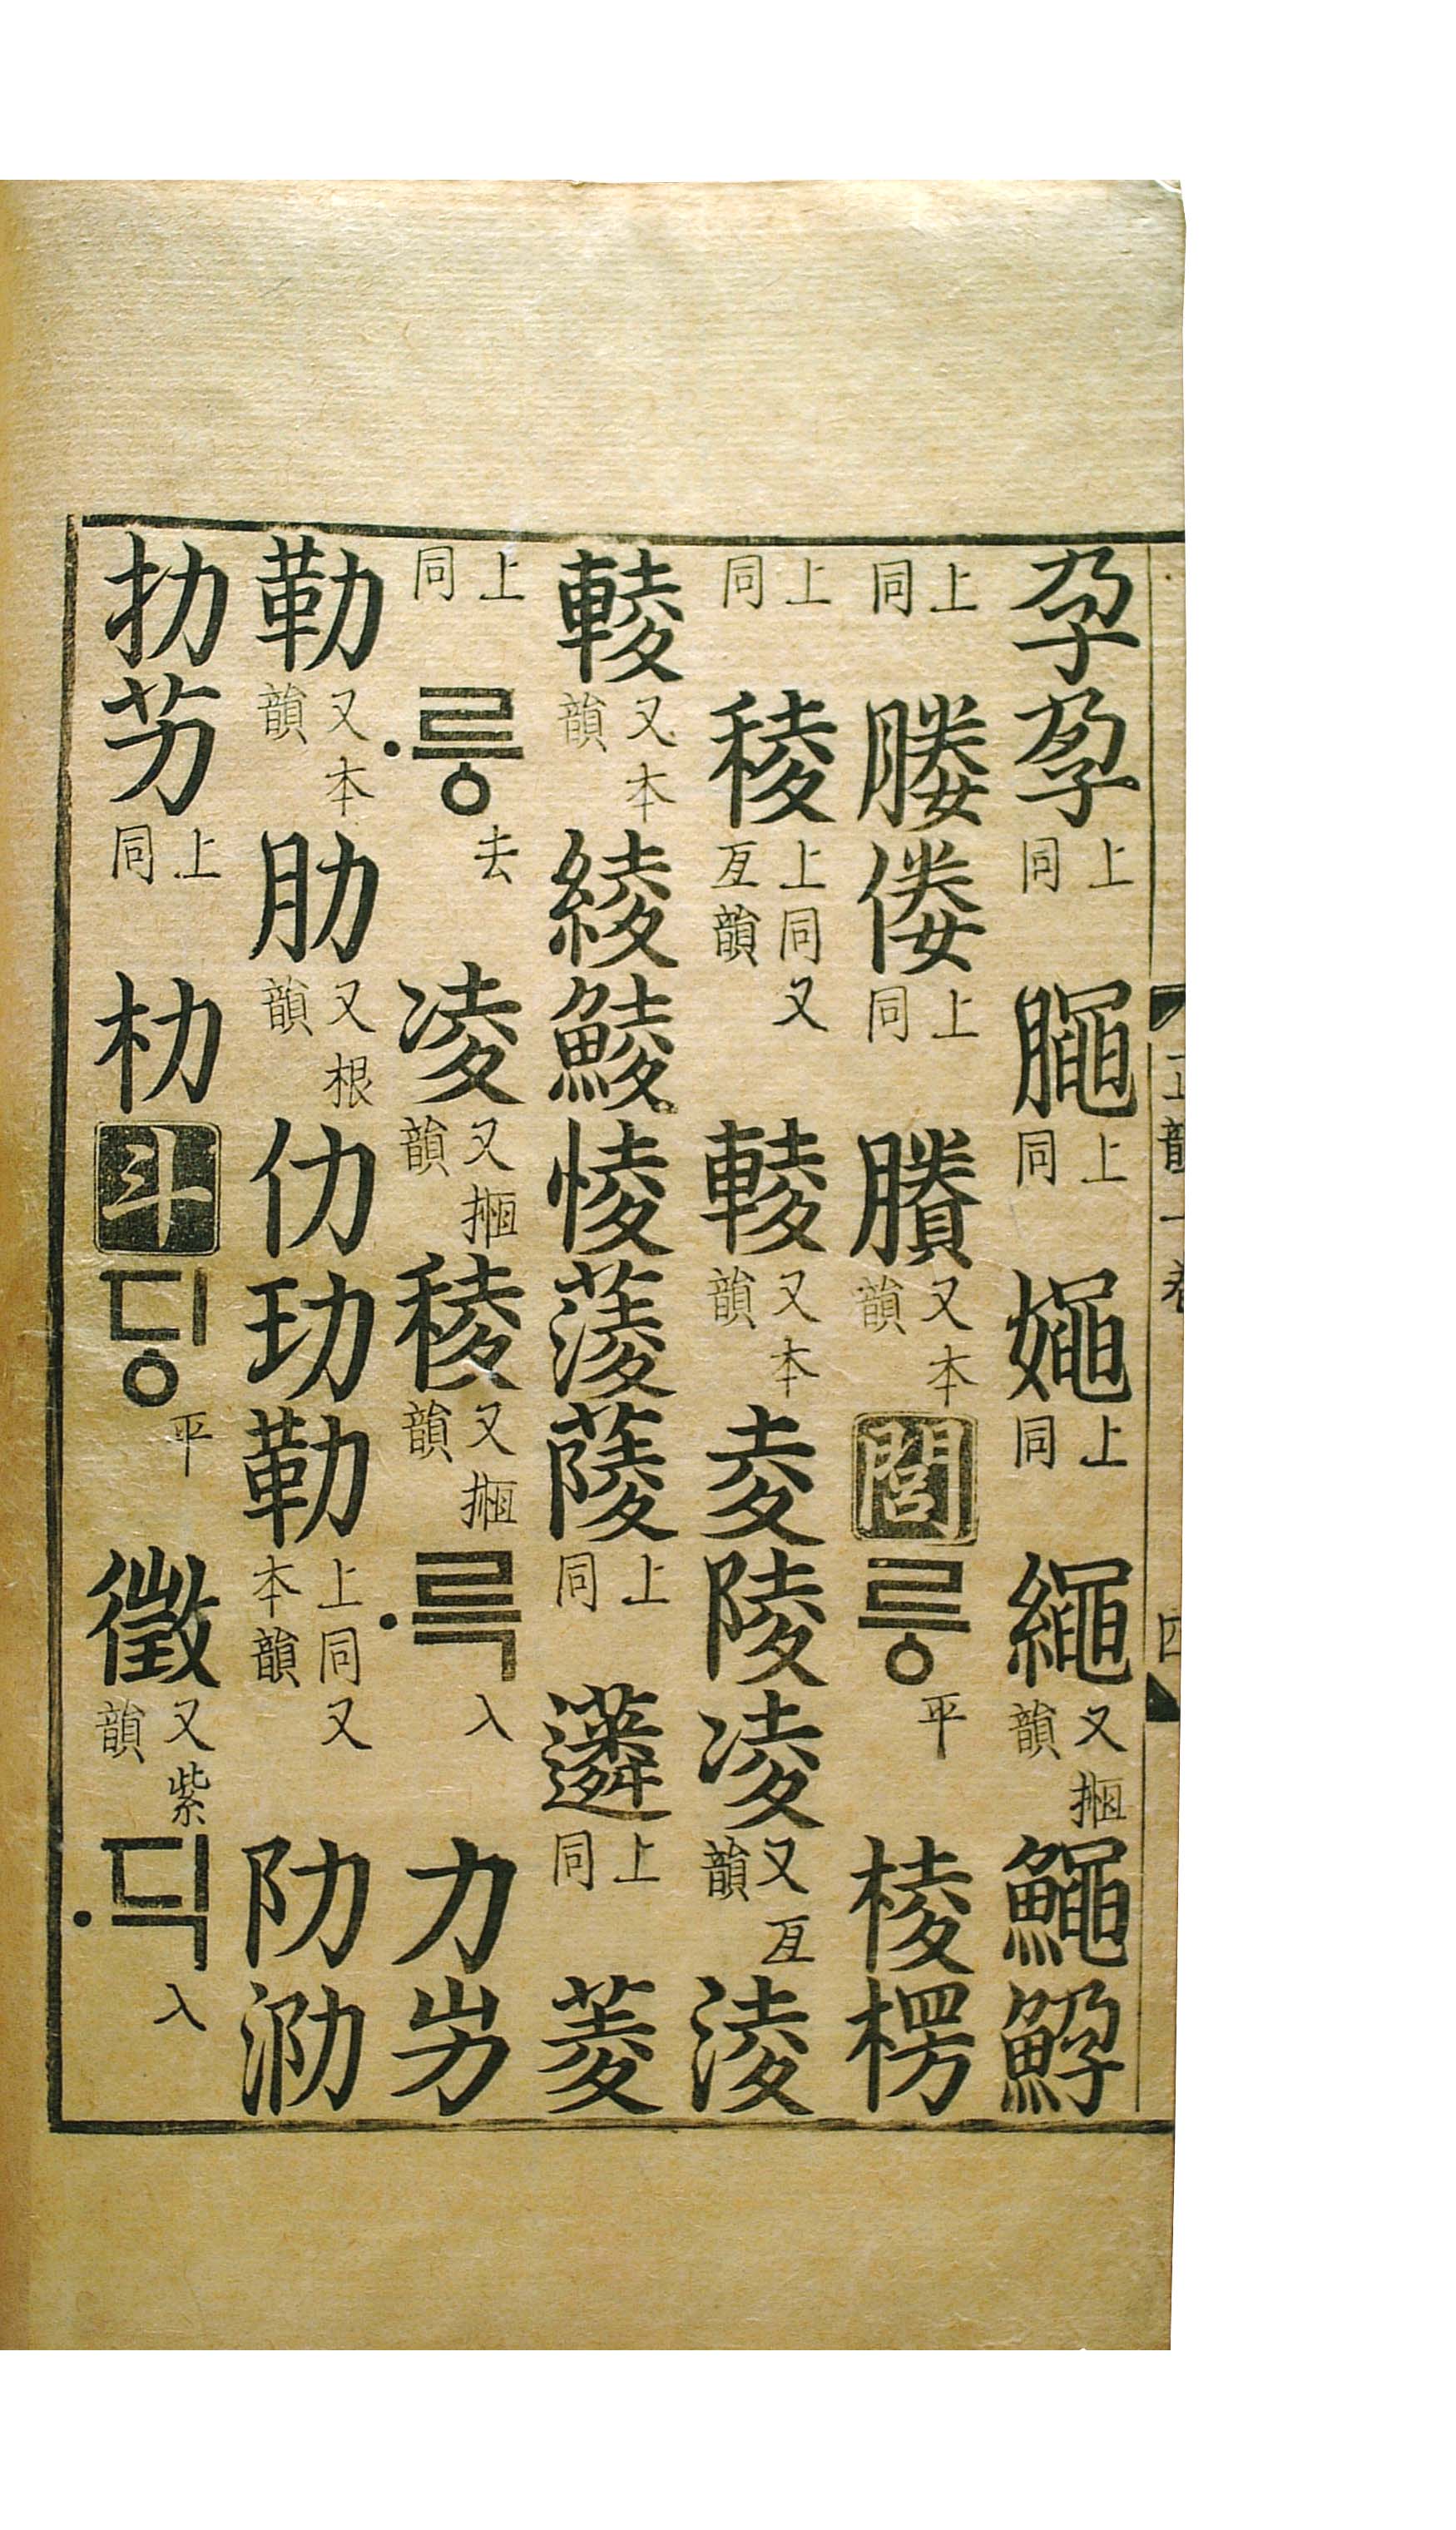 孕孕上同 䐲上同 㛴上同 繩又揯韻 鱦䱆
上同 媵倰上同 賸又本韻 閭 릉平 棱楞
上同 稜上同又亙韻 輘又本韻 夌陵凌又亙韻 淩
輘又本韻 綾鯪㥄蔆蔆上同 䔖上同 菱
上同 릉去 凌又揯韻 稜又揯韻 륵入 力屴
勒又本韻 肋又根韻 仂玏勒上同又本韻 阞泐
扐艻上同 朸 斗 딩平 徵又紫韻 딕入
正韻一卷 四